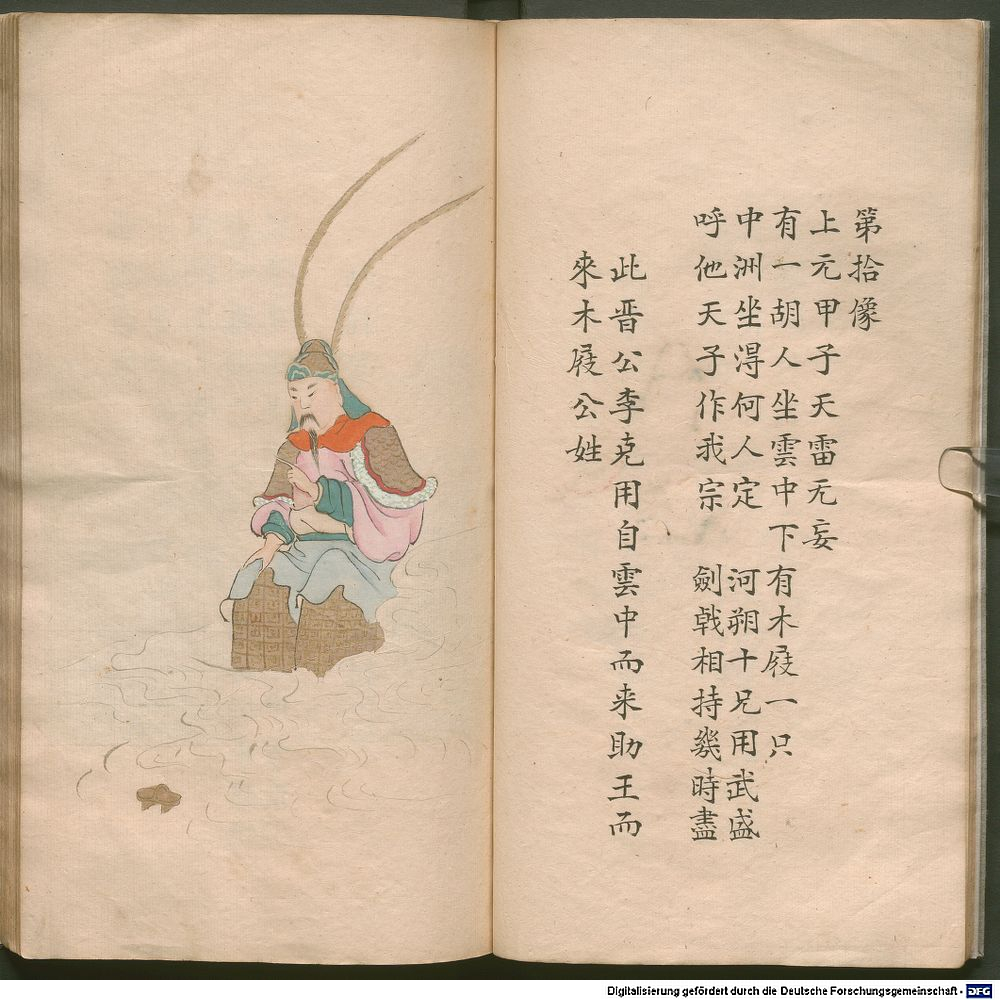 第拾像
上元甲子天雷无妄
有一胡人坐雲中下有木屐一只
中洲坐淂何人定 河朔十兄用武盛
呼他天子作我宗 劍戟相持幾時盡
此晋公李克用自雲中而来助王而
來木屐公姓
Digitalisierung gefördert durch die Deutsche Forschungsgemeinschaft - DFG